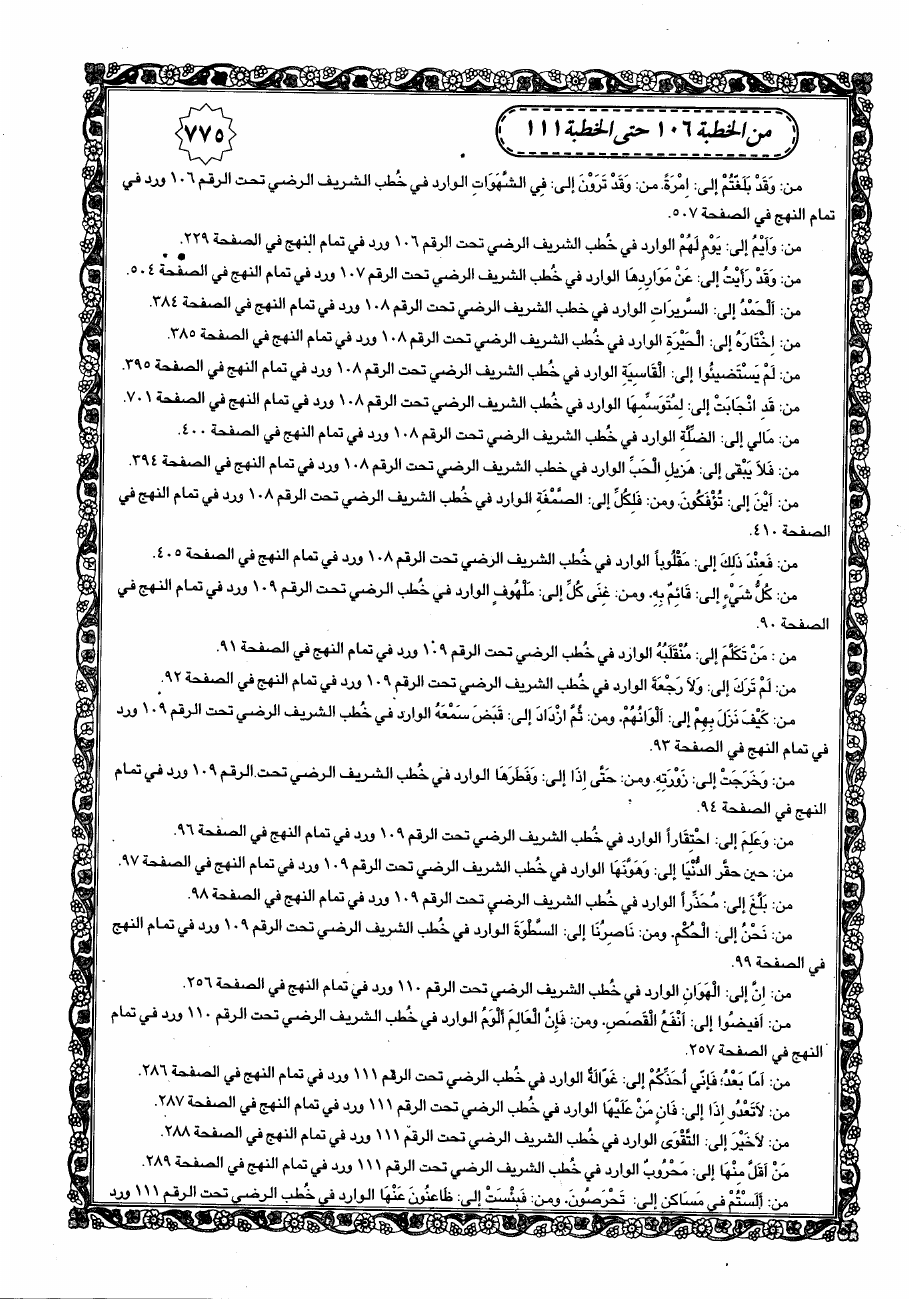 من الخطبة ١٠٦ حتى الخطبة ١١١
٧٧٥
من: وَقَدْ بَلَغْتُمْ إلى: اِمْرَةً. من: وَقَدْ تَرَوْنَ إلى: فِي الشَّهَوَاتِ الوارد في خُطب الشريف الرضي تحت الرقم ١٠٦ ورد في
تمام النهج في الصفحة ٥٠٧.
من: وَاَيْمُ إلى: يَوْمٍ لَهُمْ الوارد في خُطب الشريف الرضي تحت الرقم ١٠٦ ورد في تمام النهج في الصفحة ٢٢٩.
من: وَقَدْ رَأَيْتُ إلى: عَنْ مَوَارِدِهَا الوارد في خُطب الشريف الرضي تحت الرقم ١٠٧ ورد في تمام النهج في الصفحة ٥٠٤.
من: اَلْحَمْدُ إلى: السَّرِيرَاتِ الوارد في خطب الشريف الرضي تحت الرقم ١٠٨ ورد في تمام النهج في الصفحة ٣٨٤.
من: اِخْتَارَهُ إلى: الْحَيْرَةِ الوارد في خُطب الشريف الرضي تحت الرقم ١٠٨ ورد في تمام النهج في الصفحة ٣٨٥.
من: لَمْ يَسْتَضِيئُوا إلى: الْقَاسِيَةِ الوارد في خُطب الشريف الرضي تحت الرقم ١٠٨ ورد في تمام النهج في الصفحة ٣٩٥.
من: قَدِ انْجَابَتْ إلى: لِمُتَوَسِّمِهَا الوارد في خُطب الشريف الرضي تحت الرقم ١٠٨ ورد في تمام النهج في الصفحة ٧٠١.
من: مَالي إلى: الضَلَّةِ الوارد في خُطب الشريف الرضي تحت الرقم ١٠٨ ورد في تمام النهج في الصفحة ٤٠٠.
من: فَلاَ يَبْقى إلى: هَزِيلِ الْحَبِّ الوارد في خطب الشريف الرضي تحت الرقم ١٠٨ ورد في تمام النهج في الصفحة ٣٩٤.
من: اَيْنَ إلى: تُؤْفَكُونَ. ومن: فَلِكُلِّ إلى: الصَّمْغَةِ الوارد في خُطب الشريف الرضي تحت الرقم ١٠٨ ورد في تمام النهج في
الصفحة ٤١٠.
من: فَعِنْدَ ذَلِكَ إلى: مَقْلُوباً الوارد في خُطب الشريف الرضي تحت الرقم ١٠٨ ورد في تمام النهج في الصفحة ٤٠٥.
من: كُلُّ شَيْءٍ إلى: قَائِمٌ بِهِ. ومن: غِنَى كُلِّ إلى: مَلْهُوفٍ الوارد في خُطب الرضي تحت الرقم ١٠٩ ورد في تمام النهج في
الصفحة ٩٠.
من : مَنْ تَكَلَّمَ إلى: مُنْقَلَبُهُ الوارد في خُطب الرضي تحت الرقم ١٠٩ ورد في تمام النهج في الصفحة ٩١.
من: لَمْ تَرَكَ إلى: وَلاَ رَجْعَةَ الوارد في خُطب الشريف الرضي تحت الرقم ١٠٩ ورد في تمام النهج في الصفحة ٩٢.
من: كَيْفَ نَزَلَ بِهِمْ إلى: اَلْوَانُهُمْ. ومن: ثُمَّ ازْدَادَ إلى: قَبَضَ سَمْعَهُ الوارد في خُطب الشريف الرضي تحت الرقم ١٠٩ ورد
في تمام النهج في الصفحة ٩٣.
من: وَخَرَجَتْ إلى: زَوْرَتِهِ. ومن: حَتَّى اِذَا إلى: وَفَطَرَهَا الوارد في خُطب الشريف الرضي تحت الرقم ١٠٩ ورد في تمام
النهج في الصفحة ٩٤.
من: وَعَلِمَ إلى: احْتِقَاراً الوارد في خُطب الشريف الرضي تحت الرقم ١٠٩ ورد في تمام النهج في الصفحة ٩٦.
من: حين حقَّر الدُّنْيَا إلى: وَهَوَّنَهَا الوارد في خُطب الشريف الرضي تحت الرقم ١٠٩ ورد في تمام النهج في الصفحة ٩٧.
من: بَلَّغَ إلى: مُحَذِّراً الوارد في خُطب الشريف الرضي تحت الرقم ١٠٩ ورد في تمام النهج في الصفحة ٩٨.
من: نَحْنُ إلى: الْحُكْمِ. ومن: نَاصِرُنَا إلى: السَّطْوَةَ الوارد في خُطب الشريف الرضي تحت الرقم ١٠٩ ورد في تمام النهج
في الصفحة ٩٩.
من: اِنَّ إلى: الْهَوَانِ الوارد في خُطب الشريف الرضي تحت الرقم ١١٠ ورد في تمام النهج في الصفحة ٢٥٦.
من: اَفيضُوا إلى: اَنْفَعُ الْقَصَصِ. ومن: فَإِنَّ الْعَالِمَ اَلْوَمُ الوارد في خُطب الشريف الرضي تحت الرقم ١١٠ ورد في تمام
النهج في الصفحة ٢٥٧.
من: اَمَّا بَعْدُ؛ فَإِنّي اُحَذِّكُمْ إلى: غَوَّالَةٌ الوارد في خُطب الرضي تحت الرقم ١١١ ورد في تمام النهج في الصفحة ٢٨٦.
من: لاَتَعْدُو اِذَا إلى: فَانٍ مَنْ عَلَيْهَا الوارد في خُطب الرضي تحت الرقم ١١١ ورد في تمام النهج في الصفحة ٢٨٧.
من: لاَخَيْرَ إلى: التَّقْوَى الوارد في خُطب الشريف الرضي تحت الرقم ١١١ ورد في تمام النهج في الصفحة ٢٨٨.
مَنْ اَقَلَّ مِنْهَا إلى: مَحْرُوبٌ الوارد في خُطب الشريف الرضي تحت الرقم ١١١ ورد في تمام النهج في الصفحة ٢٨٩.
من: اَلَسْتُمْ في مَسَاكِنِ إلى: تَحْرَصُونَ. ومن: فَبِئْسَتْ إلى: ظَاعِنُونَ عَنْهَا الوارد في خُطب الرضي تحت الرقم ١١١ ورد